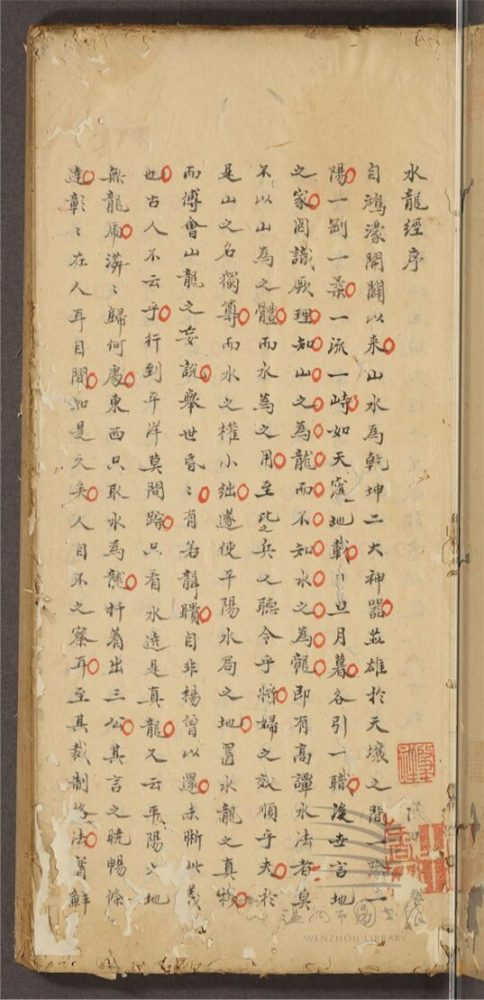 水龍經序
自鴻濛開闢以来山水為乾坤二大神器並雄於天壤之間一陰一
陽一剛一柔一流一峙如天寔地載日旦月暮各引一職後世言地
之家罔識厥理知山之為龍而不知水之為龍即有高譚水法者莫
不以山為之體而水為之用至比之兵之聽令乎將婦之效順乎夫於
是山之名獨尊而水之權小絀遂使平陽水局之地置水龍之真機
而傅會山龍之妄說舉世昏〻有若聾瞶自非楊曾以還未晰此義
也古人不云乎行到平洋莫問蹤只看水遶是真龍又云平陽之地
無龍虎漭〻歸何處東西只取水為龍扦着出三公其言之曉暢條
達彰〻在人耳目間如是之夫人自不之察耳至其裁制之法舊鮮
温州市圖書館
WENZHOU LIBRARY